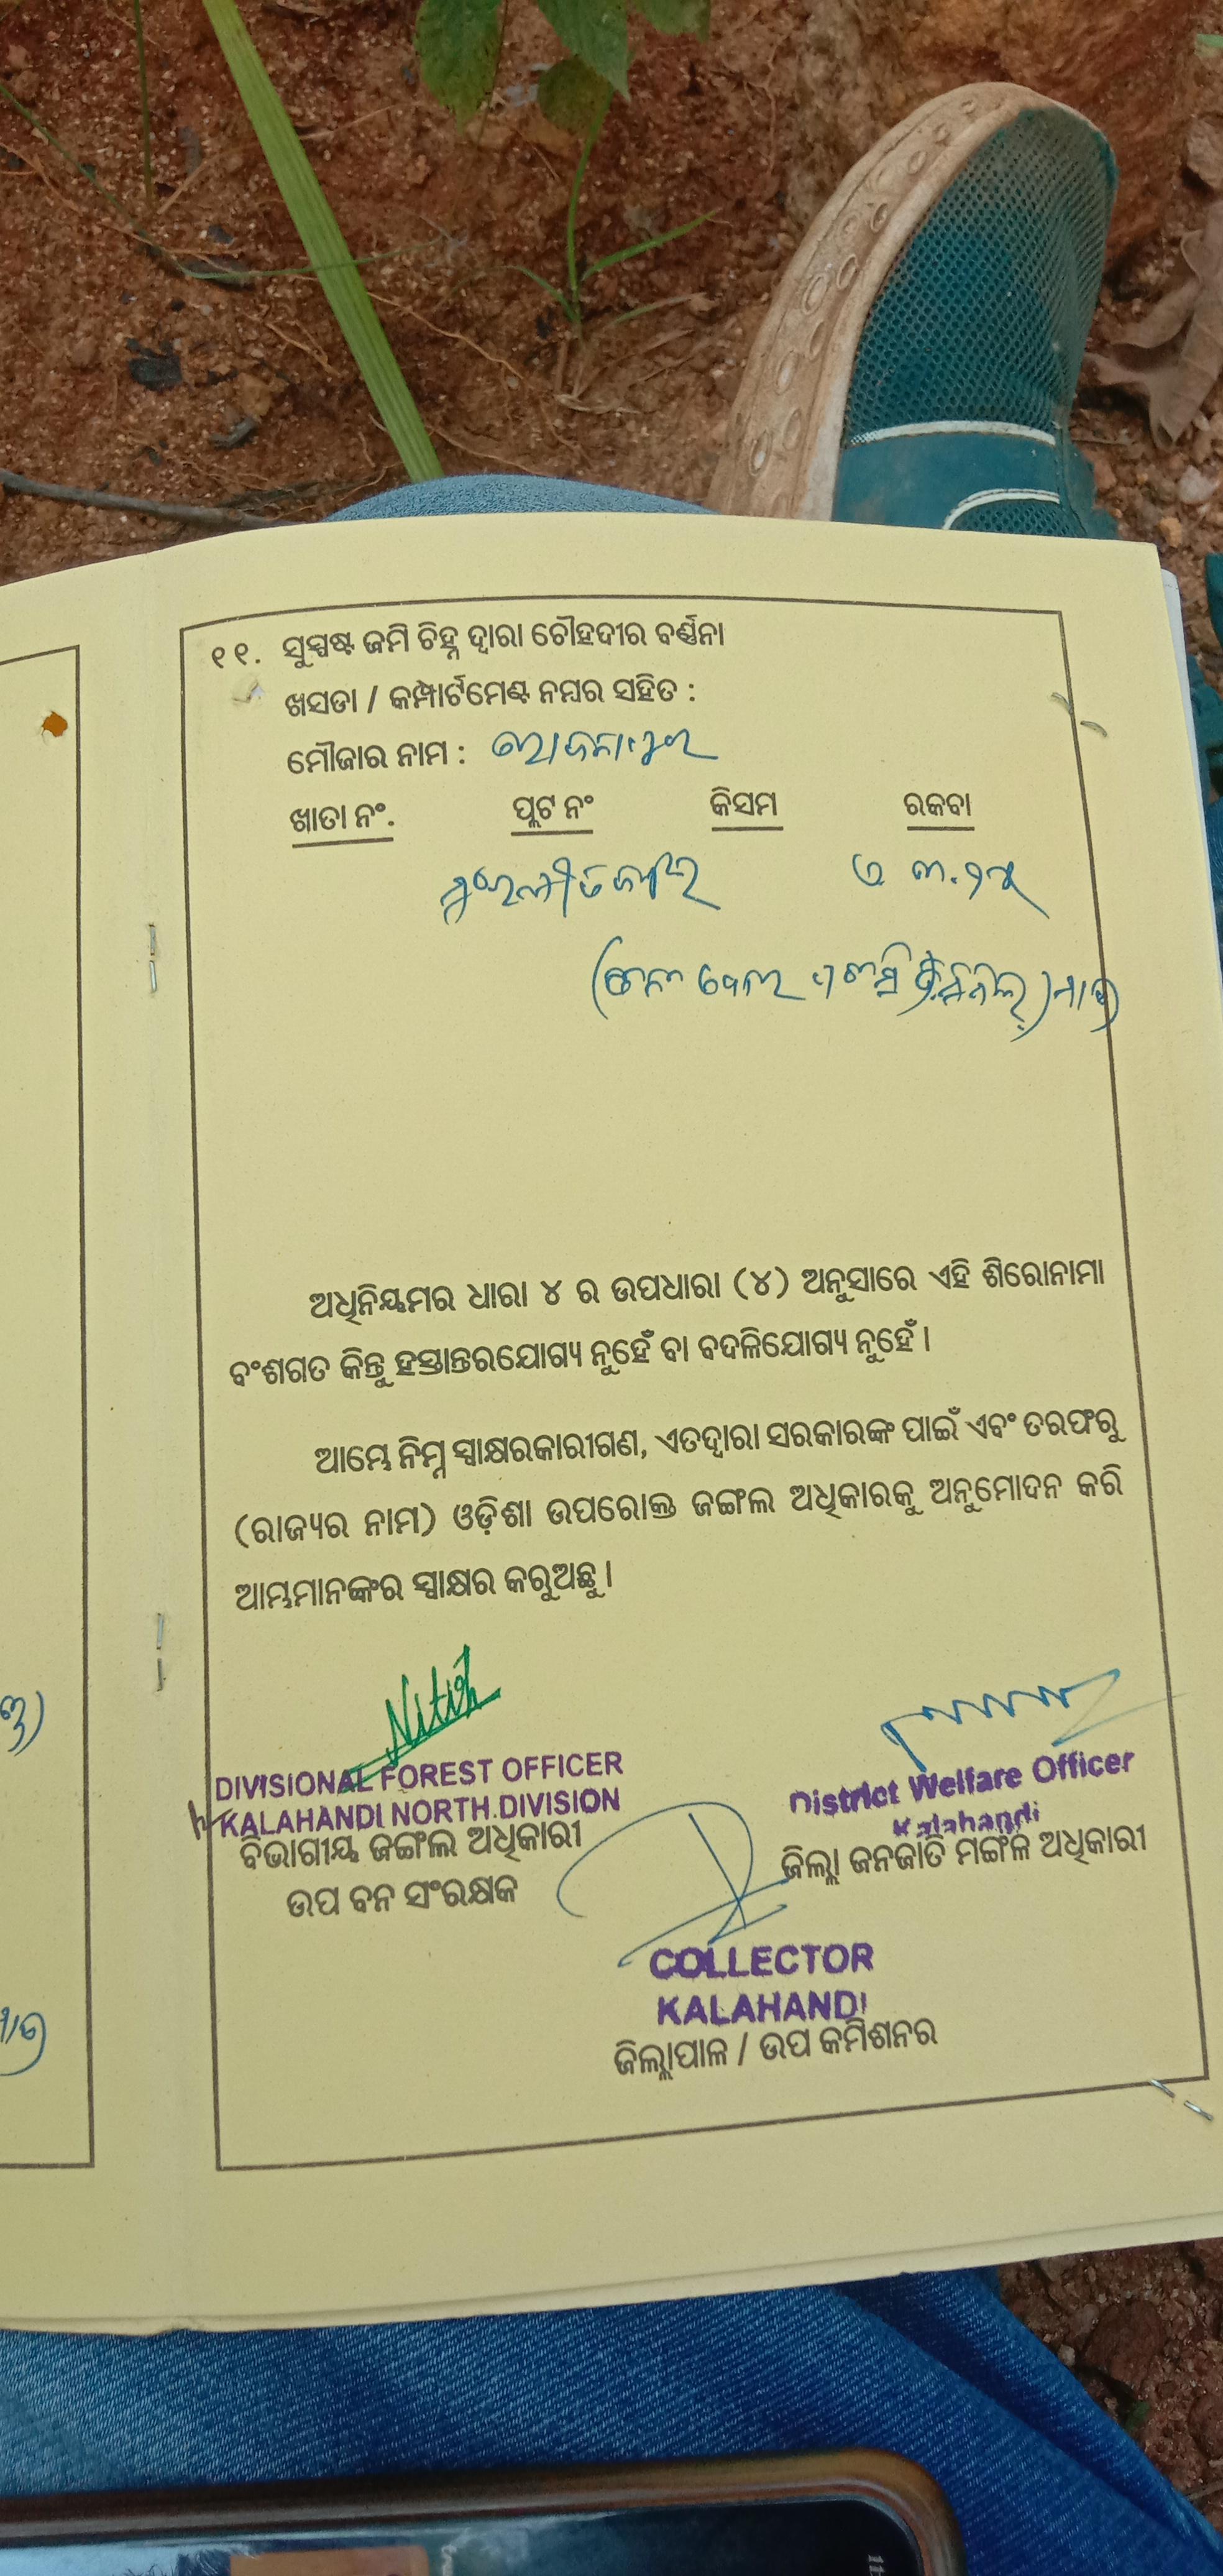 ୧୧. ସୁସ୍ପଷ୍ଟ ଜମି ଚିହ୍ନ ଦ୍ୱାରା ଚୌହଦୀର ବର୍ଣ୍ଣନା
ଖସଡା / କମ୍ପାର୍ଟମେଣ୍ଟ ନମ୍ବର ସହିତ :
ମୌଜାର ନାମ :
ଖାତା ନଂ. ପ୍ଲଟ ନଂ କିସମ ରକବା
ଅଧିନିୟମର ଧାରା ୪ ର ଉପଧାରା (୪) ଅନୁସାରେ ଏହି ଶିରୋନାମା
ବଂଶଗତ କିନ୍ତୁ ହସ୍ତାନ୍ତରଯୋଗ୍ୟ ନୁହେଁ ବା ବଦଳିଯୋଗ୍ୟ ନୁହେଁ ।
ଆମ୍ଭେ ନିମ୍ନ ସ୍ୱାକ୍ଷରକାରୀଗଣ, ଏତଦ୍ୱାରା ସରକାରଙ୍କ ପାଇଁ ଏବଂ ତରଫରୁ
(ରାଜ୍ୟର ନାମ) ଓଡ଼ିଶା ଉପରୋକ୍ତ ଜଙ୍ଗଲ ଅଧିକାରକୁ ଅନୁମୋଦନ କରି
ଆମ୍ଭମାନଙ୍କର ସ୍ୱାକ୍ଷର କରୁଅଛୁ ।
DIVISIONAL FOREST OFFICER
KALAHANDI NORTH DIVISION
ବିଭାଗୀୟ ଜଙ୍ଗଲ ଅଧିକାରୀ
ଉପ ବନ ସଂରକ୍ଷକ
District Welfare Officer
Kalahandi
ଜିଲ୍ଲା ଜନଜାତି ମଙ୍ଗଳ ଅଧିକାରୀ
COLLECTOR
KALAHANDI
ଜିଲ୍ଲାପାଳ / ଉପ କମିଶନର